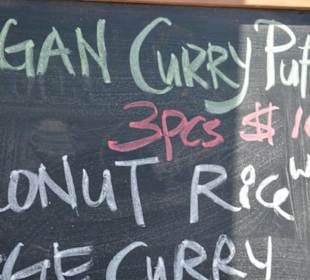 GAN CURRY Puf
3pcs $ 1
ONUT RICE w
GE CURRY